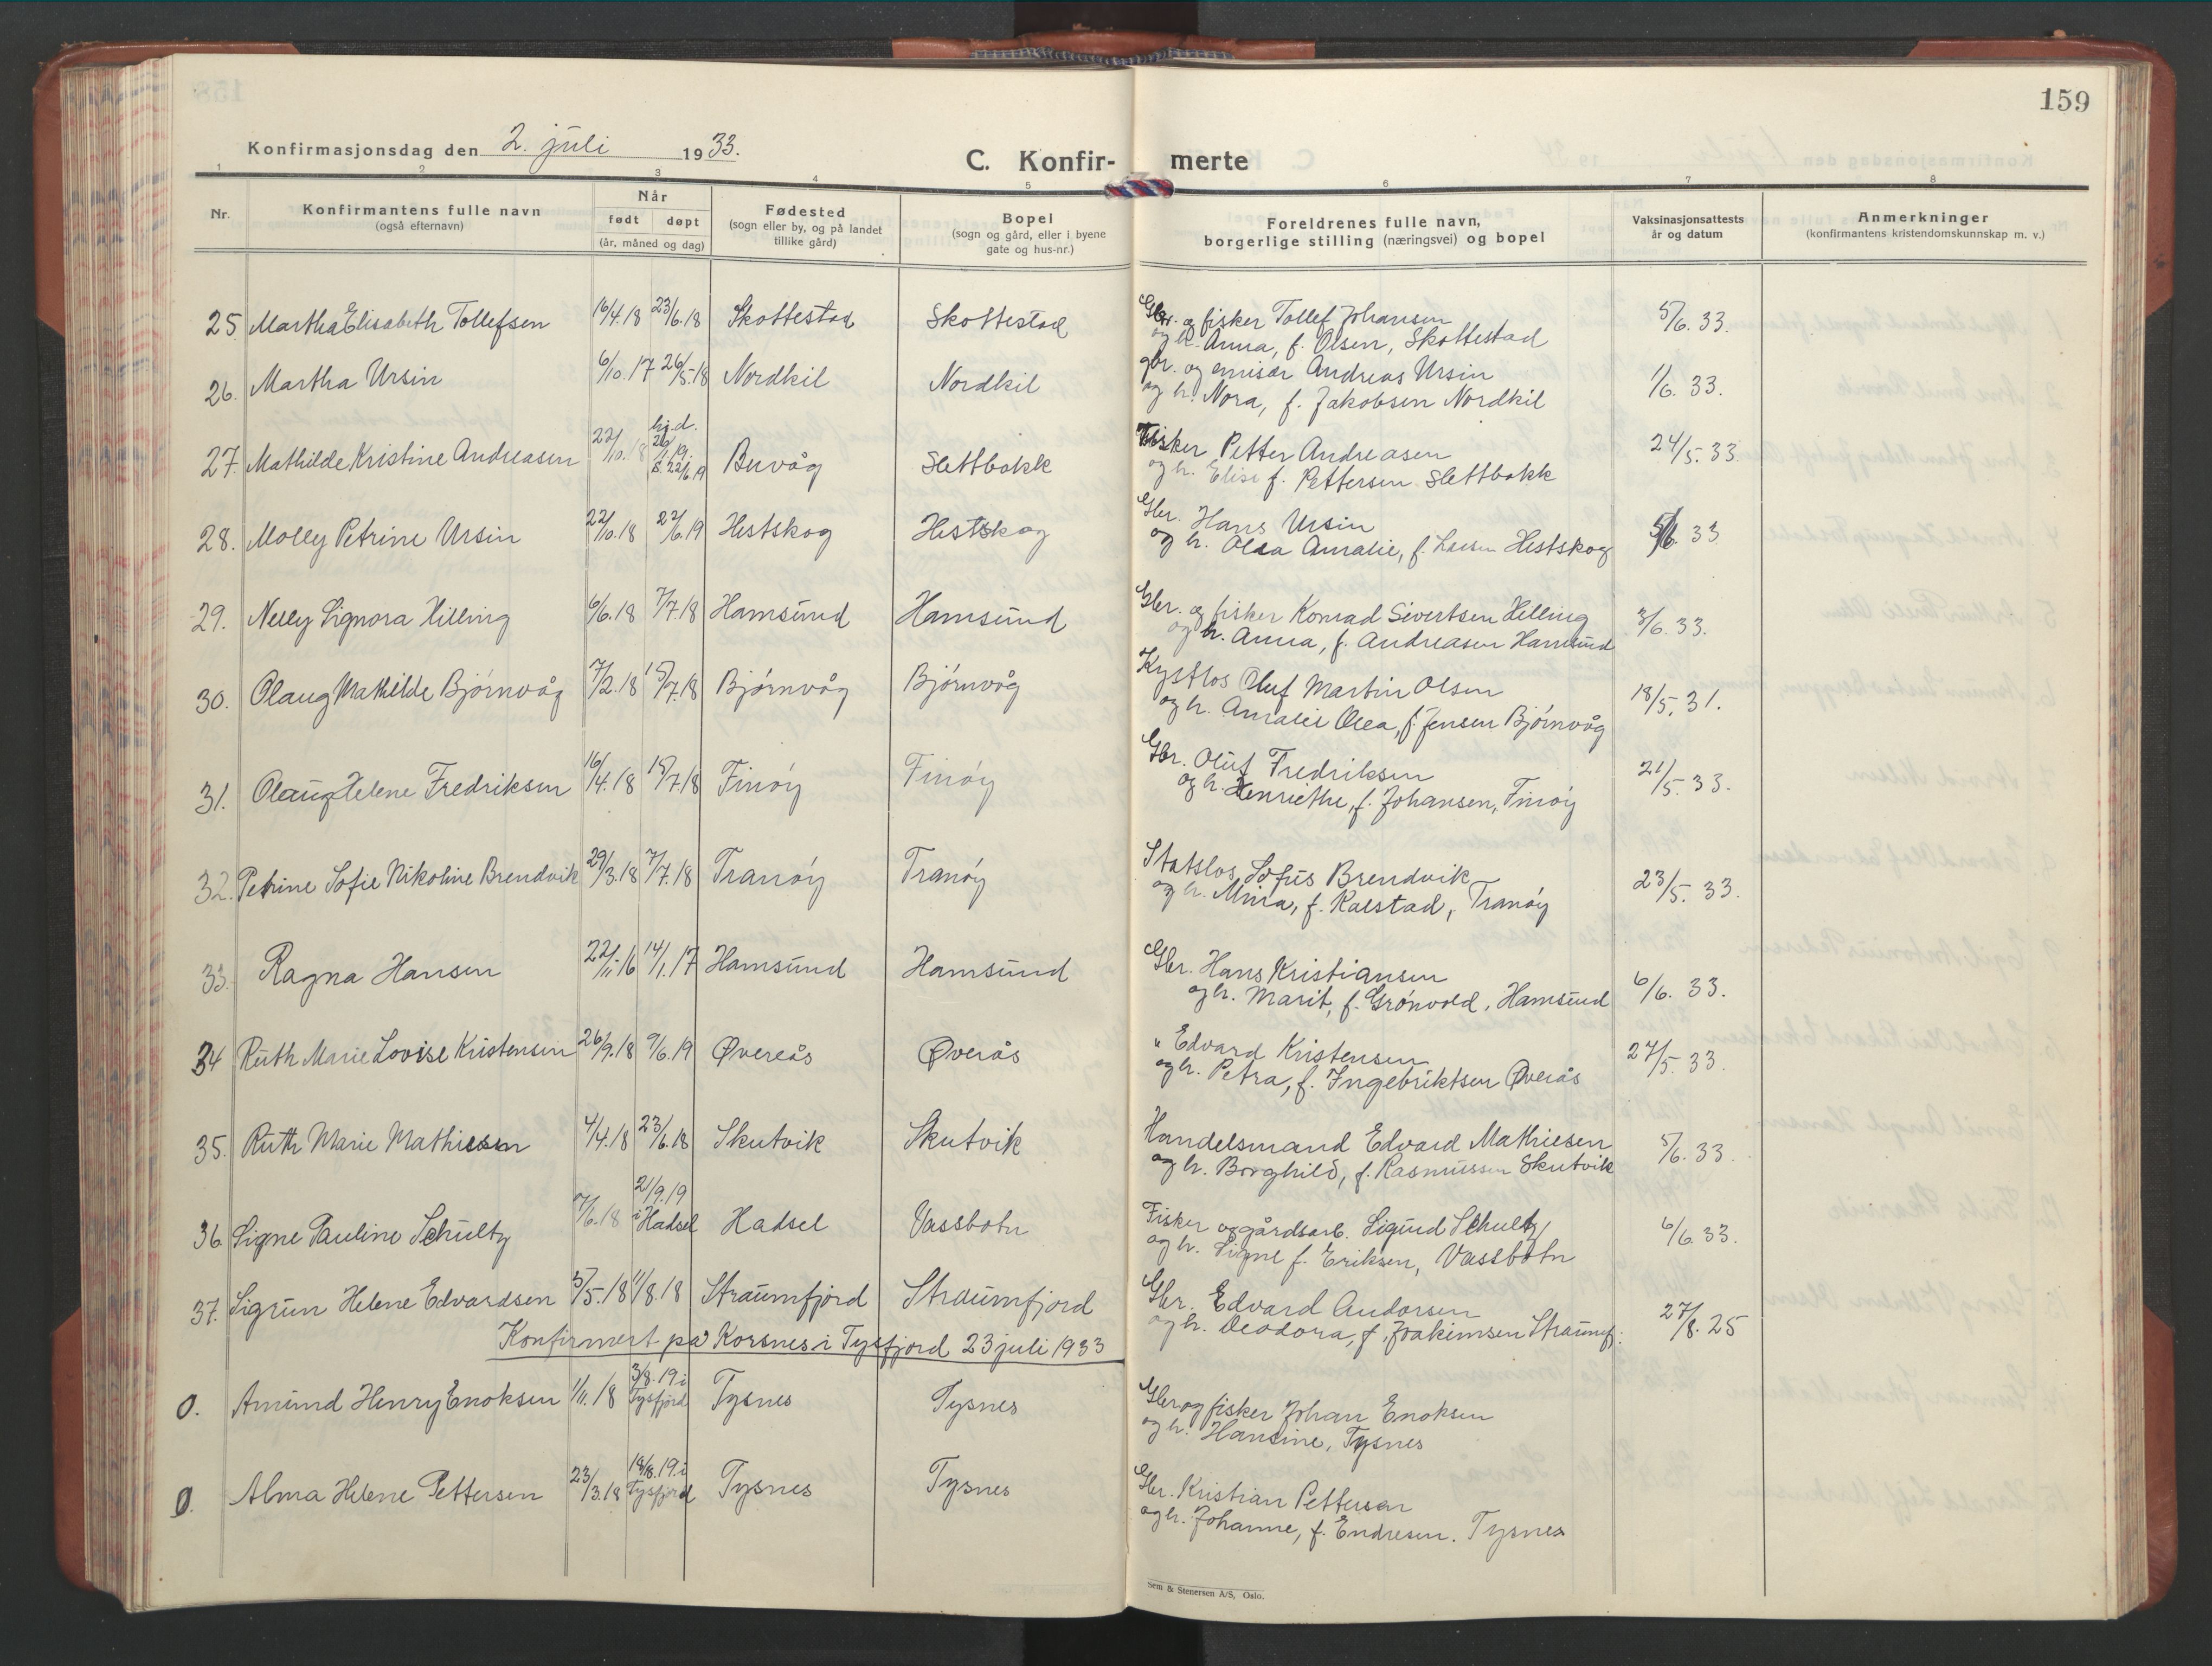 159
Konfirmasjonsdag den 2. juli 1933.
C. Konfir- merte
1 2 3 4 5 6 7 8
Nr.
Konfirmantens fulle navn
(også efternavn)
Når
født døpt
(år, måned og dag)
Fødested
(sogn eller by, og på landet
tillike gård)
Bopel
(sogn og gård, eller i byene
gate og hus-nr.)
Foreldrenes fulle navn,
borgerlige stilling (næringsvei) og bopel
Vaksinasjonsattests
år og datum
Anmerkninger
(konfirmantens kristendomskunnskap m. v.)
25 Martha Elisabeth Tollefsen 16/4.18 23/6.18 Skottestad Skottestad Gbr. og fisker Tollef Johansen 5/6.33.
og h. Anna, f. Olsen, Skottestad
26. Martha Ursin 6/10.17 26/5.18 Nordkil Nordkil gbr. og emisær Andreas Ursin 1/6.33.
og h. Nora, f. Jakobsen Nordkil
27. Mathilde Kristine Andreasen 22/10.18 hj.d. 26/1.19. 22/6.19 Buvåg Slettbakk Fisker Petter Andreasen 24/5.33.
og h. Elise f. Pettersen Slettbakk
28. Molly Petrine Ursin 22/10.18 22/6.19 Hestskog Hestskog Gbr. Hans Ursin 5/6.33
og h. Olea Amalie, f. Hestskog
29. Nelly Signora Hilling 6/6.18 7/7.18 Hamsund Hamsund Gbr. og fisker Konrad Sivertsen Hilling 3/6.33.
og h. Anna, f. Andreasen Hamsund
30. Olaug Mathilde Bjørnvåg 7/2.18 15/7.18 Bjørnvåg Bjørnvåg Kystlos Oluf Martin Olsen 18/5.31.
og h. Amalie Olea, f. Jensen Bjørnvåg
31. Olaug Helene Fredriksen 16/4.18 15/7.18 Finøy Finøy Gbr. Oluf Fredriksen 21/5.33.
og h. Henriethe, f. Johansen, Finøy
32. Petrine Sofie Nikoline Brendvik 29/3.18 7/7.18 Tranøy Tranøy Statslos Sofus Brendvik 23/5.33.
og h. Mina, f. Kalstad, Tranøy
33. Ragna Hansen 22/11.16 14/1.17 Hamsund Hamsund Gbr. Hans Kristiansen 6/6.33.
og h. Marit, f. Grønvold, Hamsund
34 Ruth Marie Lovise Kristensen 26/9.18 9/6.19 Övereås Øverås " Edvard Kristensen 27/5.33.
og h. Petra, f. Ingebriktsen Øverås
35. Ruth Marie Mathiesen 4/4.18 23/6.18 Skutvik Skutvik Handelsmand Edvard Mathiesen 5/6.33.
og h. Borghild, f. Rasmussen Skutvik
36. Signe Pauline Schultz 7/6.18 21/9.19 i Hadsel Hadsel Vassbotn Fisker og gårdsarb. Sigurd Schultz 6/6.33.
og h. Signe f. Eriksen, Vassbotn
37. Sigrun Helene Edvardsen 3/5.18 11/8.18 Straumfjord Straumfjord Gbr. Edvard Andorsen 27/8.25
og h. Deodora, f. Joakimsen Straumfj.
Konfirmert på Korsnes i Tysfjord 23 juli 1933
0. Amund Henry Enoksen 1/11.18 3/8.19 i Tysfjord Tysnes Tysnes Gbr og fisker Johan Enoksen
og h. Hansine, Tysnes
0. Alma Helene Pettersen 23/3.18 18/8.19 i Tysfjord Tysnes Tysnes Gbr. Kristian Pettersen
og h. Johanne, f. Endresen. Tysnes
Sem & Stenersen A/S, Oslo.